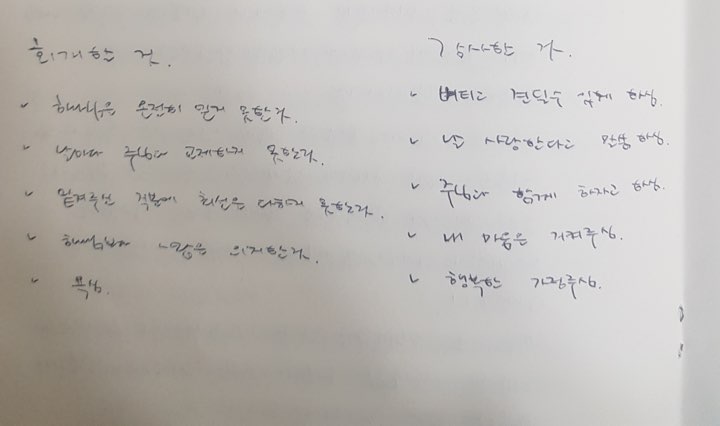 회개한 것.
✓ 하나님을 온전히 믿지 못한다.
✓ 날마다 주님과 교제하지 못한다.
✓ 맡겨주신 직분에 최선을 다하지 못한다.
✓ 하나님보다 사람을 의지한다.
✓ 욕심.
감사한 것.
✓ 버티고 견딜수 있게 하심.
✓ 날 사랑한다고 말씀 하심.
✓ 주님과 함께 하자고 하심.
✓ 내 마음을 지켜주심.
✓ 행복한 가정주심.